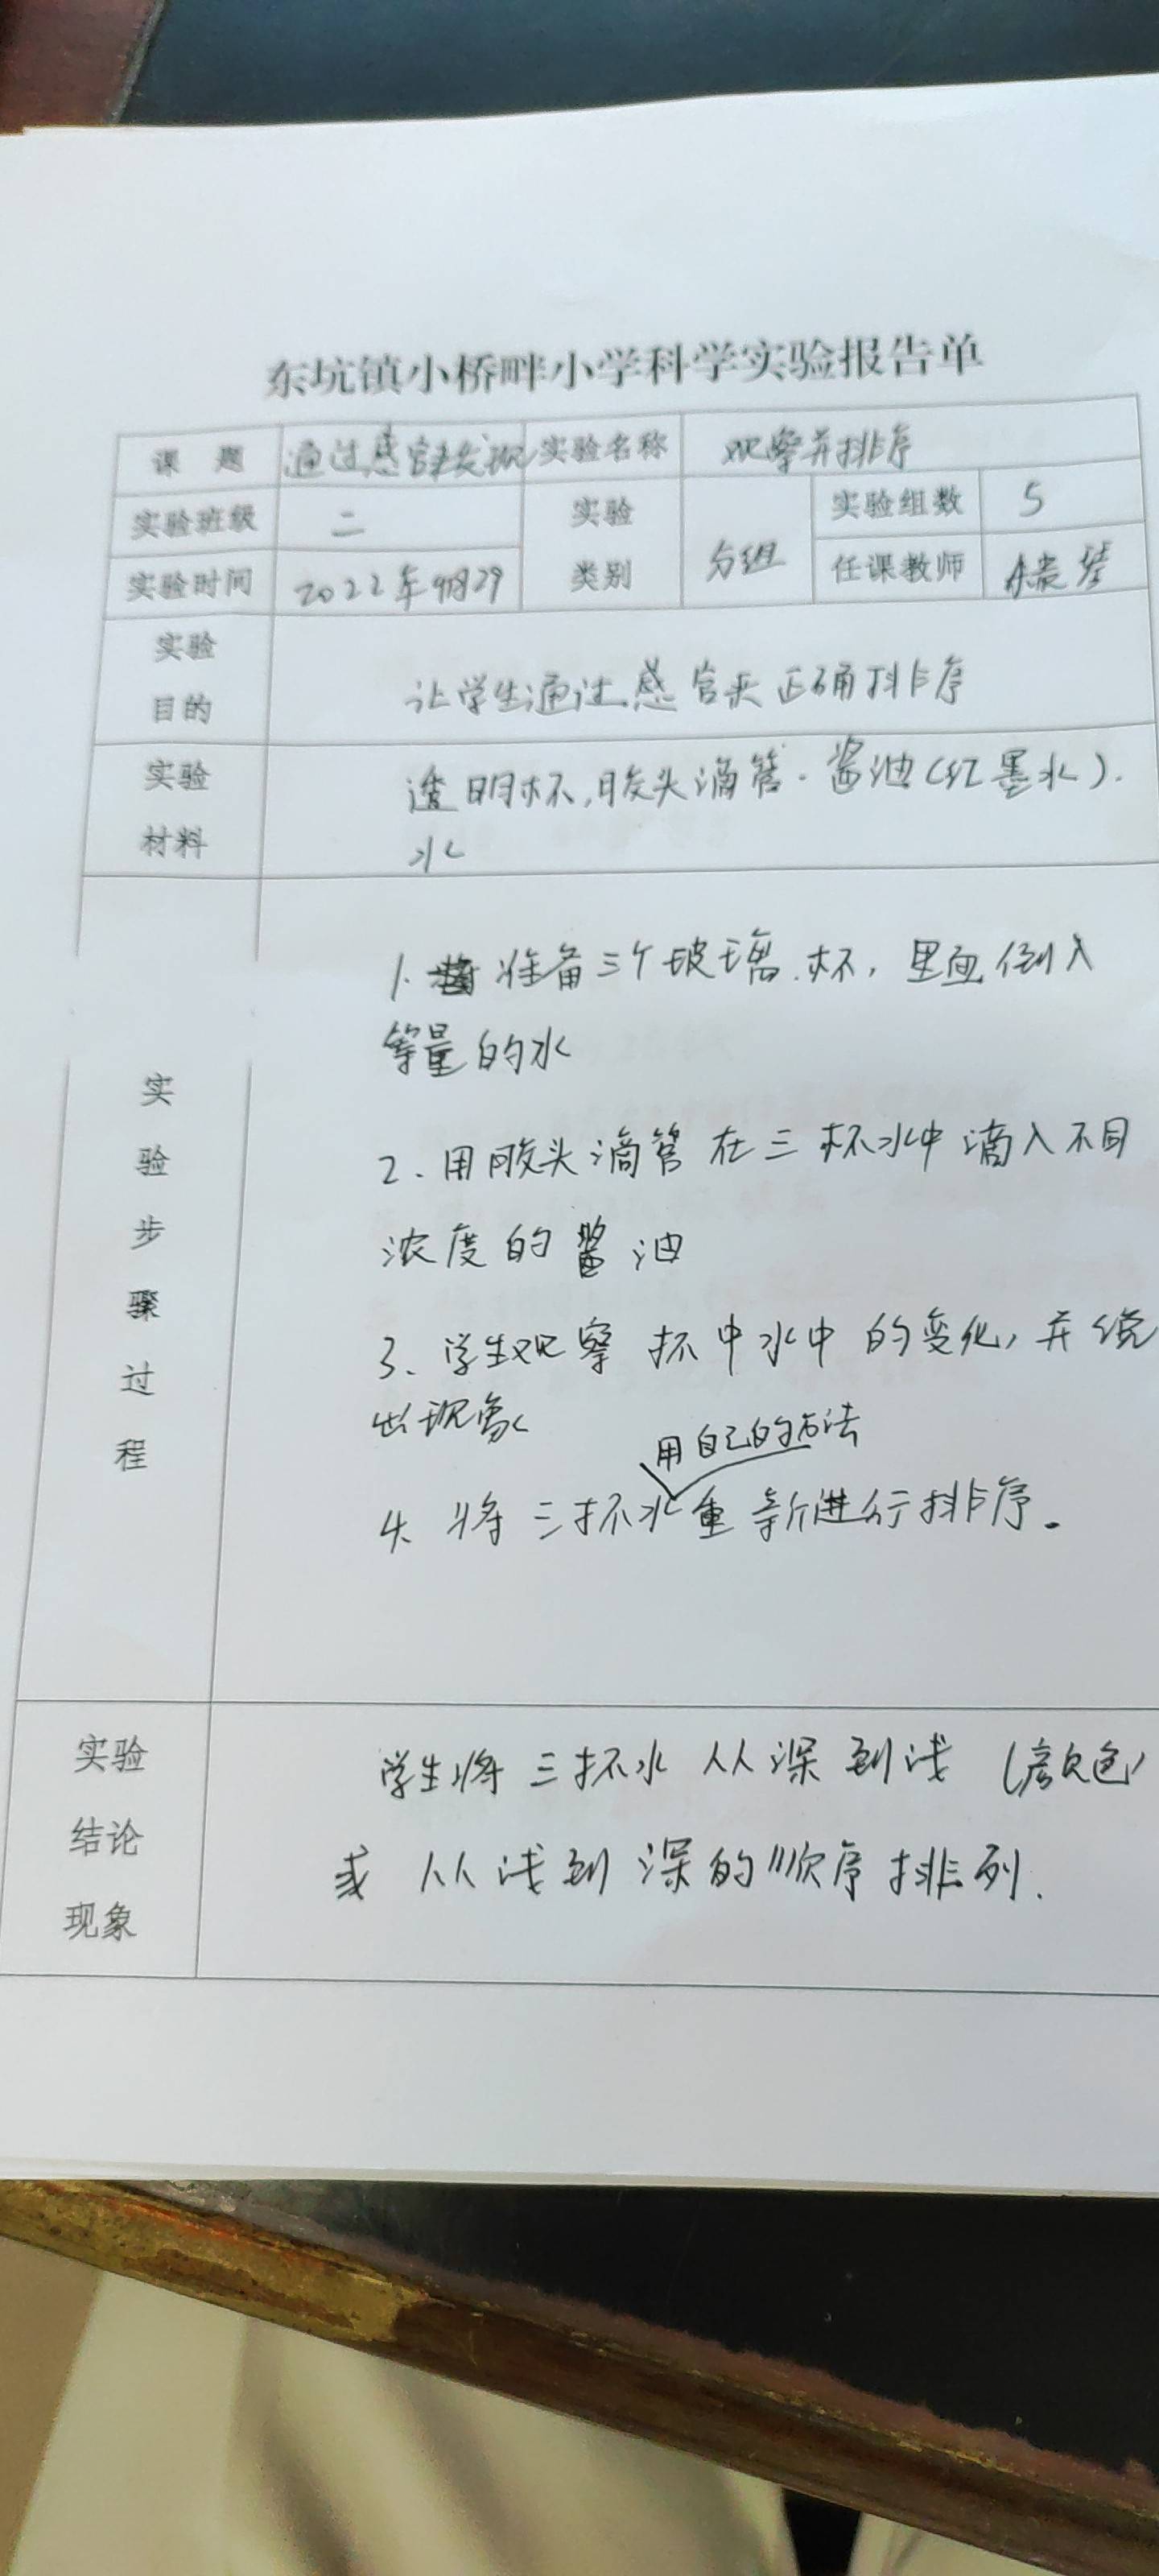 东坑镇小桥畔小学科学实验报告单
课 题 通过感官来发现 实验名称 观察并排序
实验班级 二 实验类别 分组 实验组数 5
实验时间 2022年9月29 任课教师
实验目的 让学生通过感官来正确排序
实验材料 透明杯,胶头滴管.酱油(红墨水).
水
实验步骤过程
1. 准备三个玻璃杯,里面倒入
等量的水
2.用胶头滴管在三杯水中滴入不同
浓度的酱油
3、学生观察杯中水中的变化,并说
出现象
用自己的方法
4、将三杯水重新进行排序。
实验结论现象 学生将三杯水从深到浅(颜色)
或从浅到深的顺序排列.